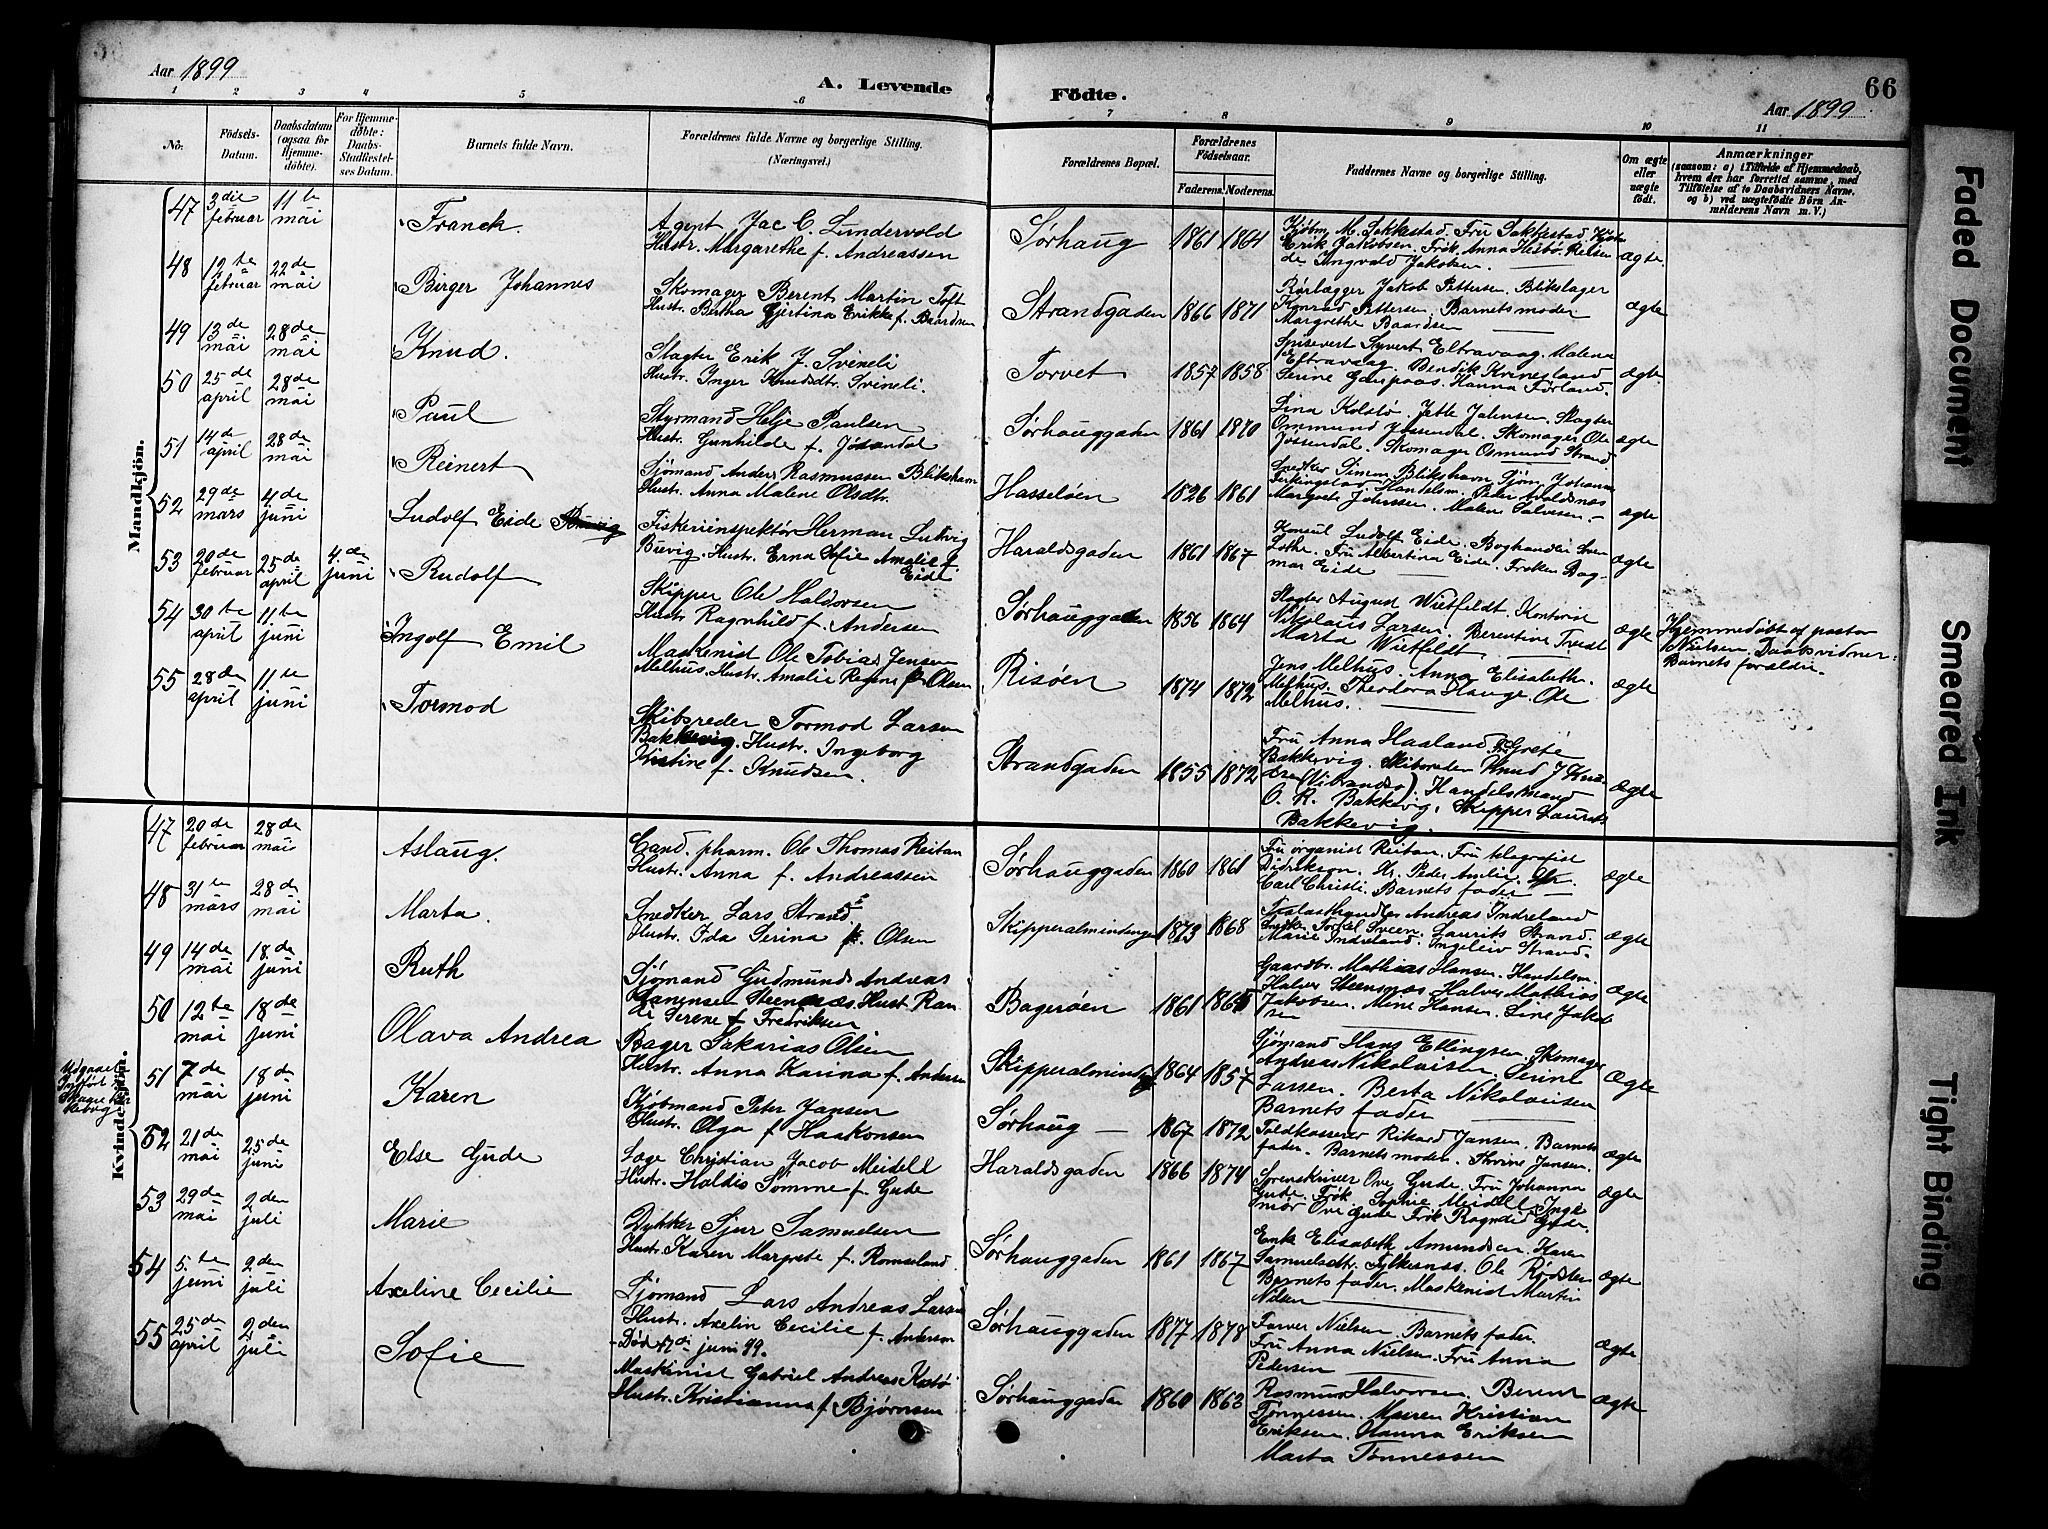 Aar 1899
A. Levende Fødte.
66
Aar 1899
1 2 3 4 5 6 7 8 9 10 11
No.
Fødsels-Datum.
Daabsdatum (ogsaa for Hjemmedøbte).
For Hjemmedøbte: Daabs-Stadfæstelses Datum.
Barnets fulde Navn.
Forældrenes fulde Navne og borgerlige Stilling. (Næringsvei.)
Forældrenes Bopæl.
Forældrenes Fødselsaar.
Faderens. Moderens.
Faddernes Navne og borgerlige Stilling.
Om ægte eller uægte født.
Anmærkninger
(saasom: a) i Tilfælde af Hjemmedaab, hvem der har forrettet samme, med Tilføielse af to Daabsvidners Navne. og b) ved uægtefødte Børn Anmelderens Navn m. V.)
Mandkjøn.
47 3die februar 11te mai Franck
Agent Jac C. Lundervold
Hustr. Margarethe f. Andreassen
Sørhaug 1861 1864
Kjøbm. M. Sakkestad. Fru Sakkestad. Kjøbm
Erik Jakobsen. Frøk. Anna
de Ingvald Jakobsen.
ægte.
48 12te februar 22de mai Birger Johannes
Skomager Berent Martin Toft
Hustr. Bertha Gjertina Erikke f. Baardsen
Strandgaden 1866 1871
Rørlægger Jakob Pettersen. Blikslager
Konrad Pettersen. Barnets moder
Margrethe Baardsen
ægte
49 13de mai 28de mai Knud.
Slagter Erik J. Svineli
Hustr. Inger Knudsdtr. Svineli.
Torvet 1857 1858
Spisevert Syvert Eltravaag. Malena
Eltravaag. Bendik Kvinesland
Serine Gaupaas. Hanna Førland.
ægte.
50 25de april 28de mai Paul
Styrmand Helje Paulsen
Hustr. Gunhilde f. Jøsendal
Sørhauggaden 1861 1870
Lina Kolstø. Jette Johnsen. Slagter
Ommund Jøssendal. Skomager Ole
Jøssendal. Skomager Osmund Strand
ægte
51 14de april 28de mai Reinert
Sjømand Anders Rasmussen Blikshavn
Hustr. Anna Malene Olsdtr.
Hasseløen 1826 1861
Snedker Simon Blikshavn Sjøm. Johannes
Ferkingstad. Handelsm. Peder Avaldsnes
Margrete Johnsen. Malene Salvesen.
ægte
52 29de mars 4de juni Ludolf Eide
Fiskeriinspektør Herman Ludvig
Buvig. Hustr. Erna Sofie Amalie f.
Eide
Haraldsgaden 1861 1867
Konsul Ludolf Eide. Boghandler Sven
Lothe. Fru Albertina Eide. Frøken Dag-
mar Eide
ægte
53 20de februar 25de april 4de juni Rudolf
Skipper Ole Haldorsen
Hustr. Ragnhild f. Andersen
Sørhauggaden 1856 1864
Slagter August Wietfeldt. Kontorist
Nikolaus Larsen. Berentine Tvedt
Marta Wietfeldt.
ægte
Hjemmedøbt af pastor
Nielsen. Daabsvidner:
Barnets forældre.
54 30te april 11te juni Ingolf Emil
Maskenist Ole Tobias Jensen
Melhus. Hustr. Amalie Regine f. Olsen
Risøen 1874 1872
Jens Melhus. Anna Elisabeth.
Melhus. Theodora Hauge. Ole
Melhus.
ægte
55 28de april 11te juni Tormod
Skibsreder Tormod Larsen
Bakkevig. Hustr. Ingeborg
Kristine f. Knudsen.
Strandgaden 1855 1872
Fru Anna Haaland. Fru Grete
Bakkevig. Skibsreder Knud J. Knud-
sen. Handelsmand
O. R. Bakkevig. Skipper Laurits
Bakkevig.
ægte
Kvindekjøn.
47 20de februar 28de mai Aslaug.
Cand. pharm. Ole Thomas Reitan
Hustr. Anna f. Andreassen
Sørhauggaden 1860 1861
Fru organist Reitan. Fru telegrafist
Didriksen. Hr. Peder Amlie. Hr.
Carl Christi. Barnets fader
ægte
48 31te mars 28de mai Marta.
Snedker Lars Strand.
Hustr. Ida Serina f. Olsen
Skipperalmindingen 1873 1868
Andreas Indreland
Snedker Torkel Sveen. Laurits Strand.
Marie Indreland. Ingeleiv Strand.
ægte
49 14de mai 18de juni Ruth
Sjømand Gudmund Andreas
Stensnæs. Hustr. Ran-
di Serene f. Fredriksen
Bagerøen 1861 1865
Gaardbr. Mathias Hansen. Handelsm.
Halvor Steensnæs. Halvor Mathias
Jakobsen. Mine Hansen. Line Jakob
sen
ægte
50 12te mai 18de juni Olava Andrea
Bager Sakarias Olsen
Hustr. Anna Karina f. Andersen
Skipperalminding 1864 1857
Sjømand Hans Ellingsen. Skomager
Andreas Nikolaisen. Serine
Larsen. Berta Nikolaisen
Barnets fader
ægte
51 7de mai 18de juni Karen
Kjøbmand Peter Jansen
Hustr. Olga f. Haakonsen
Sørhaug 1867 1872
Toldkasserer Rikard Jansen. Barnets
fader. Barnets moder. Thrine Jansen.
ægte
52 21de mai 25de juni Else Gude
Læge Christian Jacob Meidell
Hustr. Haldis Sømme f. Gude
Haraldsgaden 1866 1874
Sorenskriver Ove Gude. Fru Johanna
Gude. Frøk Sophie Meidell. Inge-
niør Ove Gude. Frøk Ragnhild Gude.
ægte
53 29de mai 2den juli Marie
Dykker Sjur Samuelsen
Hustr. Karen Margrete f. Romseland.
Sørhauggaden 1861 1867
Enke Elisabeth Amundsen. Karen
Samuelsdtr. Fylkesnæs. Ole Rødsten
Barnets fader. Maskenist Martin
Nilsen
ægte
54 5te juni 2den juli Axeline Cecilie
Sjømand Lars Andreas Larsen
Hustr. Axelin Cecilie f. Anderson
Død 17de juni 99.
Sørhauggaden 1877 1878
Farver Nielsen. Barnets fader.
Fru Anna Nielsen. Fru Anna
Pedersen
ægte
55 25de april 2den juli Sofie
Maskinist Gabriel Andreas Kolstø
Hustr. Kristianna f. Bjørnsen
Sørhauggaden 1860 1862
Rasmus Halvorsen. Berent
Tønnessen. Maren Kristian
Eriksen. Hanna Eriksen
Marta Tønnessen
ægte
Faded Document
Smeared Ink
Tight Binding